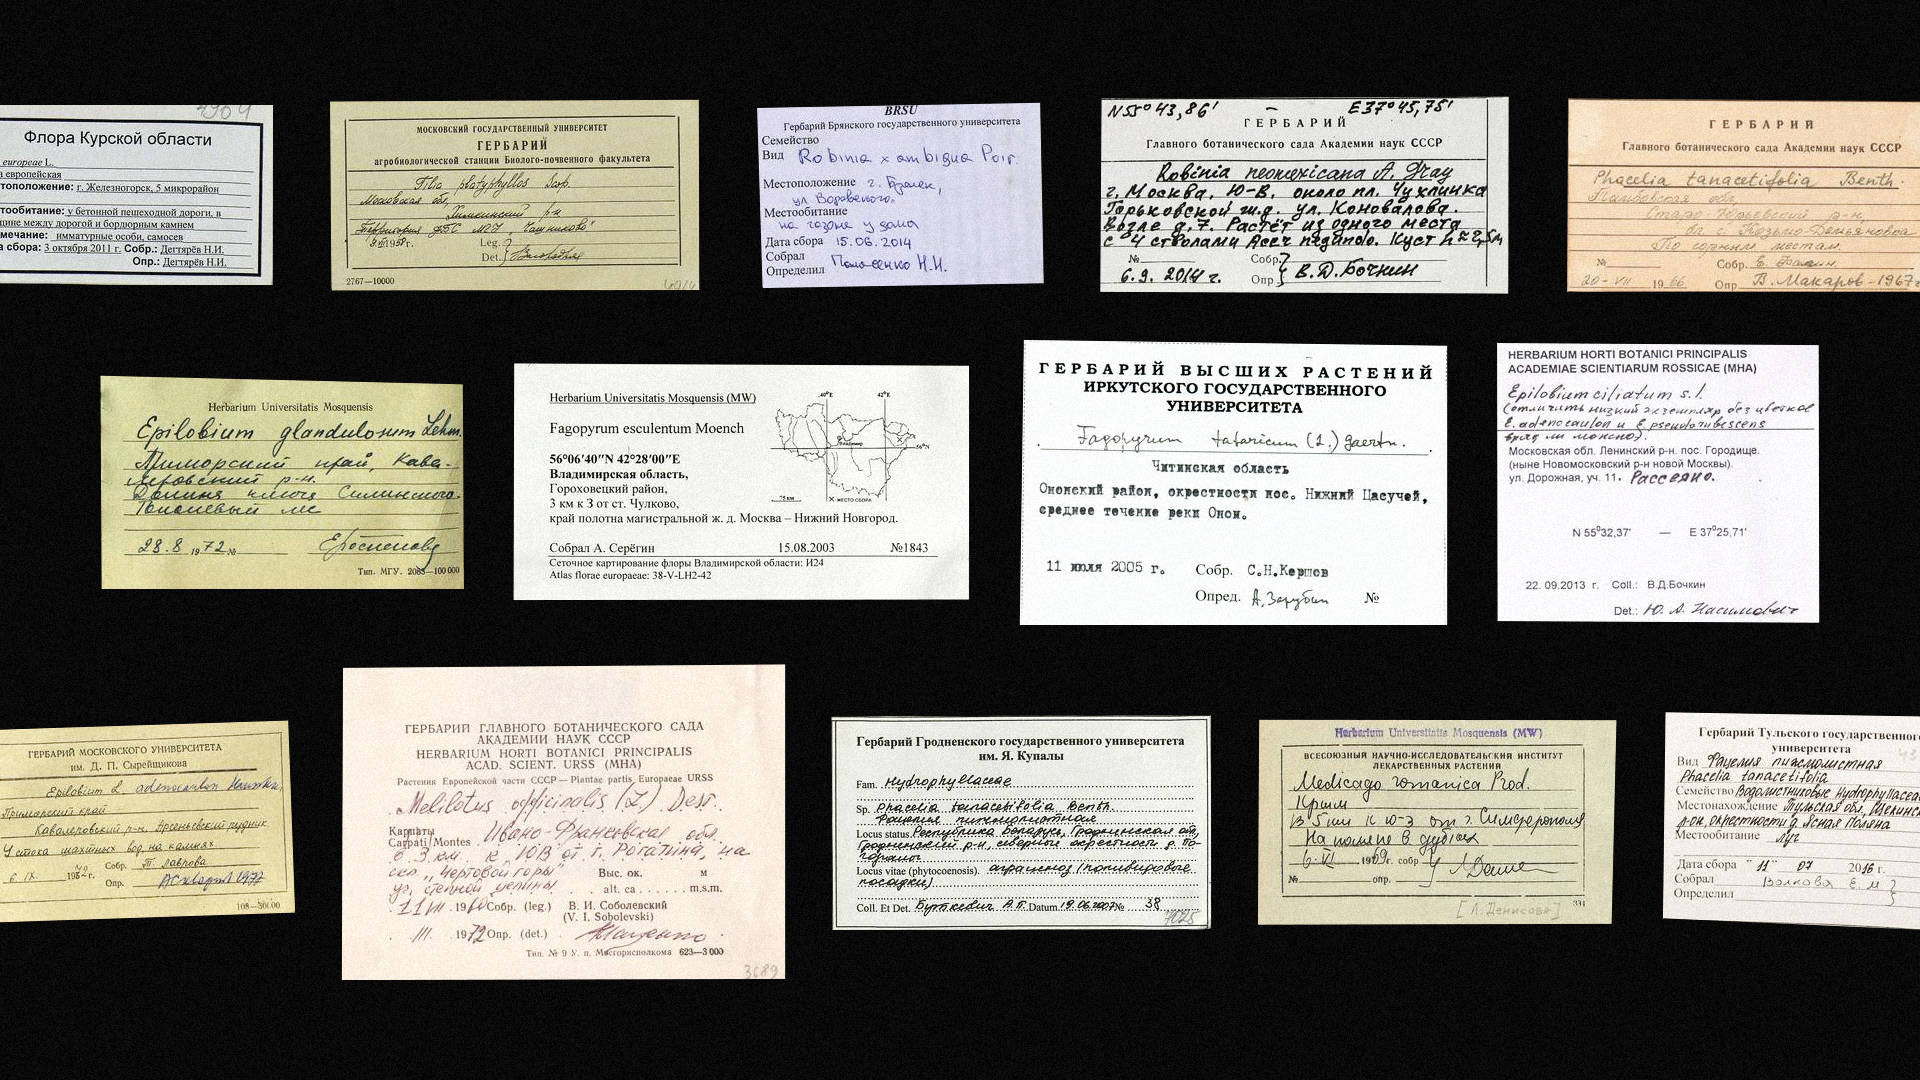 4904
Флора Курской области
europeae L.
а европейская
тоположение: г. Железногорск, 5 микрорайон
тообитание: у бетонной пешеходной дороги, в
щине между дорогой и бордюрным камнем
мечание: имматурные особи, самосев
а сбора: 3 октября 2011 г. Собр.: Дегтярёв Н.И.
Опр.: Дегтярёв Н.И.
МОСКОВСКИЙ ГОСУДАРСТВЕННЫЙ УНИВЕРСИТЕТ
ГЕРБАРИЙ
агробиологической станции Биолого-почвенного факультета
Tilia platyphyllos Scop.
Московская обл.
Химкинский р-н
Территория АБС МГУ „Чашниково"
1958г. Leg.
Det.
2767—10000
BRSU
Гербарий Брянского государственного университета
Семейство
Вид Robinia x ambigua Poir.
Местоположение г. Брянск,
ул. Воровского.
Местообитание
на газоне у дома
Дата сбора 15.06.2014
Собрал
Определил Панасенко Н.Н.
N55° 43,86' — E37° 45,75'
ГЕРБАРИЙ
Главного ботанического сада Академии наук СССР
Robinia neomexicana A. Gray
г. Москва. Ю-В. около пл. Чухлинка
Горьковской ж.д. ул. Коновалова.
Возле д. 7. Растёт из одного места
с 4 стволами Acer negundo. Куст h≈2,5м
№ Собр.
6.9. 2014 г. Опр. В.Д.Бочкин
ГЕРБАРИЙ
Главного ботанического сада Академии наук СССР
Phacelia tanacetifolia Benth.
Тамбовская обл.
Старо-Юрьевский р-н,
бл с. Козьмо-Демьяновка
По сорным местам.
№ Собр.
20-VII 1966 Опр. В. Макаров-1967г
Herbarium Universitatis Mosquensis
Epilobium glandulosum Lehm.
Приморский край, Кава-
леровский р-н.
Долина ключа Силинского.
Тополевый лес
28.8 1972 №
Тип. МГУ. 2085—100 000
Herbarium Universitatis Mosquensis (MW)
Fagopyrum esculentum Moench
56°06′40″N 42°28′00″E
Владимирская область,
Гороховецкий район,
3 км к З от ст. Чулково,
край полотна магистральной ж. д. Москва – Нижний Новгород.
Собрал А. Серёгин 15.08.2003 №1843
Сеточное картирование флоры Владимирской области: И24
Atlas florae europaeae: 38-V-LH2-42
40°E 42°E
Владимир
56°N
75 км
МЕСТО СБОРА
ГЕРБАРИЙ ВЫСШИХ РАСТЕНИЙ
ИРКУТСКОГО ГОСУДАРСТВЕННОГО
УНИВЕРСИТЕТА
Fagopyrum tataricum (L.) Gaertn.
Читинская область
Ононский район, окрестности пос. Нижний Цасучей,
среднее течение реки Онон.
11 июля 2005 г. Собр. С.Н.Кершов
Опред. А.Зарубин №
HERBARIUM HORTI BOTANICI PRINCIPALIS
ACADEMIAE SCIENTIARUM ROSSICAE (MHA)
Epilobium ciliatum s. l.
(отличить низкий экземпляр без цветков
E. adenocaulon и E. pseudorubescens
вряд ли можно).
Московская обл. Ленинский р-н. пос. Городище.
(ныне Новомосковский р-н новой Москвы).
ул. Дорожная, уч. 11. Рассеяно.
N 55°32,37' — E 37°25,71'
22.09.2013 г. Coll.: В.Д.Бочкин
Det.: Ю. А. Насимович
ГЕРБАРИЙ МОСКОВСКОГО УНИВЕРСИТЕТА
им. Д. П. Сырейщикова
Epilobium adenocaulon Hausskn.
Приморский край
Кавалеровский р-н. Арсеньевский рудник
У стока шахтных вод, на камнях
6 IX. Собр. Т. Лаврова
Опр. 1977
ГЕРБАРИЙ ГЛАВНОГО БОТАНИЧЕСКОГО САДА
АКАДЕМИИ НАУК СССР
HERBARIUM HORTI BOTANICI PRINCIPALIS
ACAD. SCIENT. URSS (MHA)
Растения Европейской части СССР — Plantae partis Europaeae URSS
Melilotus officinalis (L.) Desr.
Карпаты
Carpati/Montes Ивано-Франковская обл.
6.3 км. к ЮВ от г. Рогатина, на
скл. „Чертовой горы" Выс. ок. м
уч. степной целины alt. ca m.s.m.
11 VII. 1960 Собр. (leg.) В. И. Соболевский
(V. I. Sobolevski)
III. 1972 Опр. (det.)
Тип. № 9 У. п. Мосгорисполкома 623—3 000
3689
Гербарий Гродненского государственного университета
им. Я. Купалы
Fam. Hydrophyllaceae
Sp. Phacelia tanacetifolia Benth.
Фацелия пижмолистная
Locus status. Республика Беларусь, Гродненская обл,
Гродненский р-н, северные окрестности д.
Locus vitae (phytocoenosis). агрофитоценоз
Coll. Et Det. Буткевич А.П. Datum 19.06.2007 № 38
7025
Herbarium Universitatis Mosquensis (MW)
ВСЕСОЮЗНЫЙ НАУЧНО-ИССЛЕДОВАТЕЛЬСКИЙ ИНСТИТУТ
ЛЕКАРСТВЕННЫХ РАСТЕНИЙ
Medicago romanica Prod.
Крым
В 5 км к Ю-З от г. Симферополя
На поляне в дубках
6-VI 1969г. собр
№ опр.
[Л. Денисова]
331
Гербарий Тульского государственного
университета
Вид Фацелия пижмолистная
Phacelia tanacetifolia
Семейство Водолистниковые Hydrophyllaceae
Местонахождение Тульская обл., Щекинский
р-он, окрестности д. Ясная Поляна
Местообитание луг
Дата сбора "11" 07 2016 г.
Собрал Волкова Е. М.
Определил